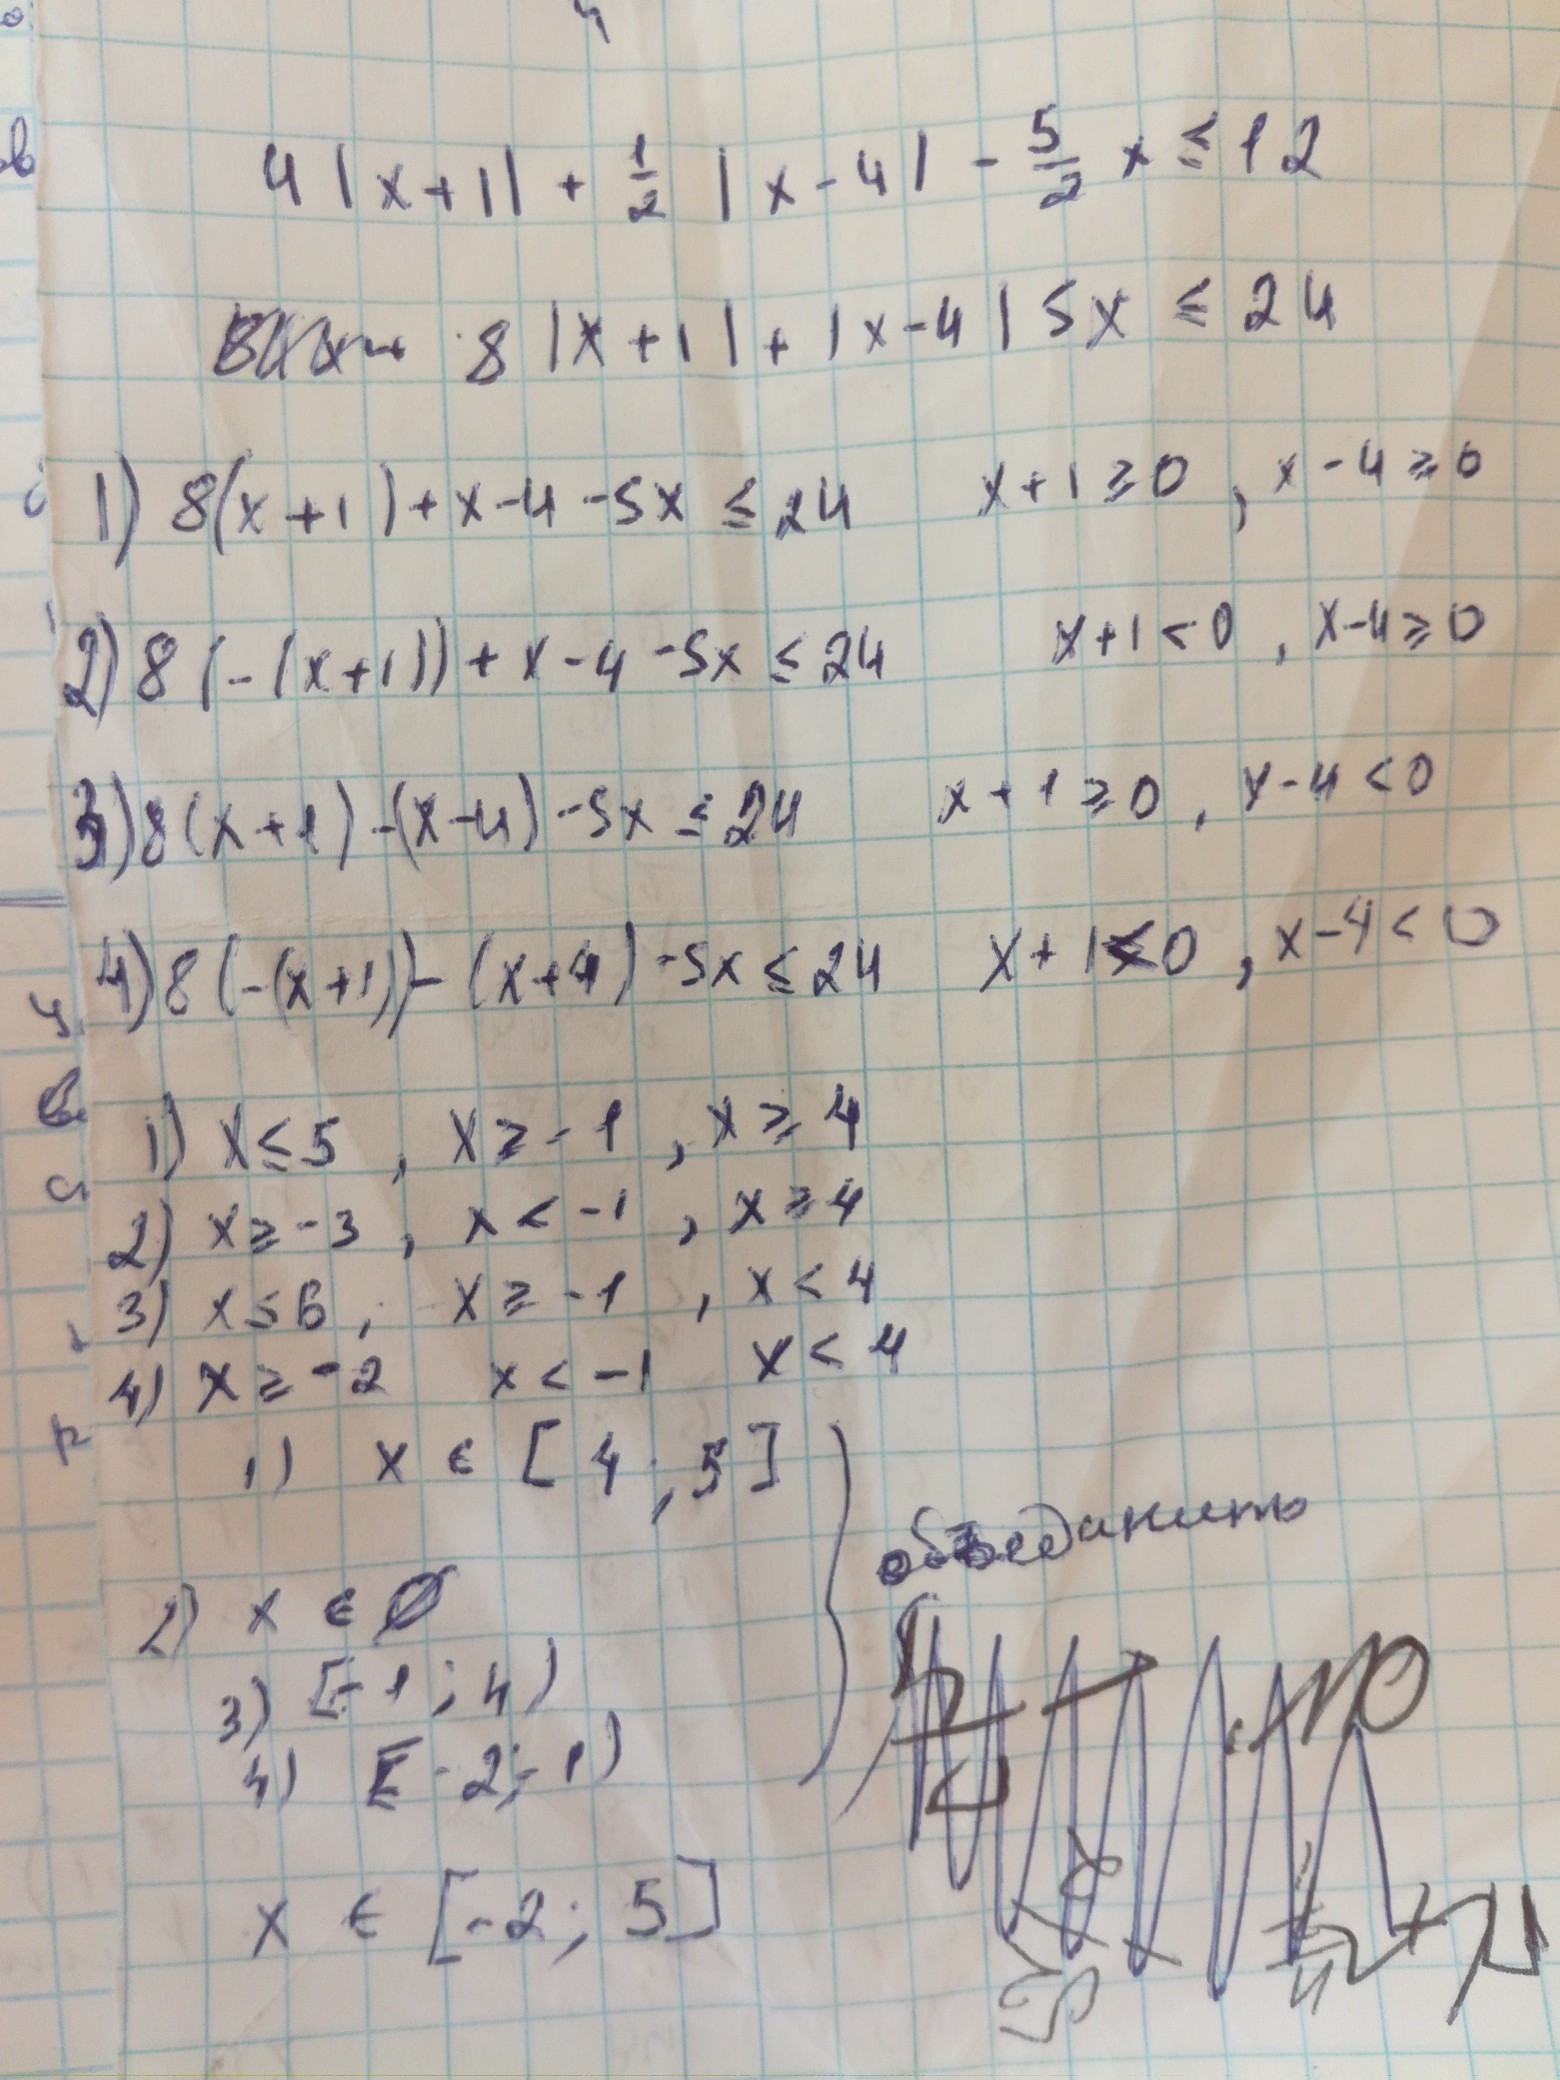 4|x+1| + 1/2 |x-4| - 5/2 x ≤ 12
8|x+1|+|x-4|5x ≤ 24
1) 8(x+1)+x-4-5x ≤ 24 x+1≥0, x-4≥0
2) 8(-(x+1))+x-4-5x ≤ 24 x+1<0, x-4≥0
3) 8(x+1)-(x-4)-5x ≤ 24 x+1≥0, x-4<0
4) 8(-(x+1))-(x+4)-5x ≤ 24 x+1<0, x-4<0
1) x≤5, x≥-1, x≥4
2) x≥-3, x<-1, x≥4
3) x≤6, x≥-1, x<4
4) x≥-2 x<-1 x<4
1) x ∈ [4;5]
объеданить
2) x ∈ ∅
3) [-1;4)
4) [-2;-1)
x ∈ [-2; 5]